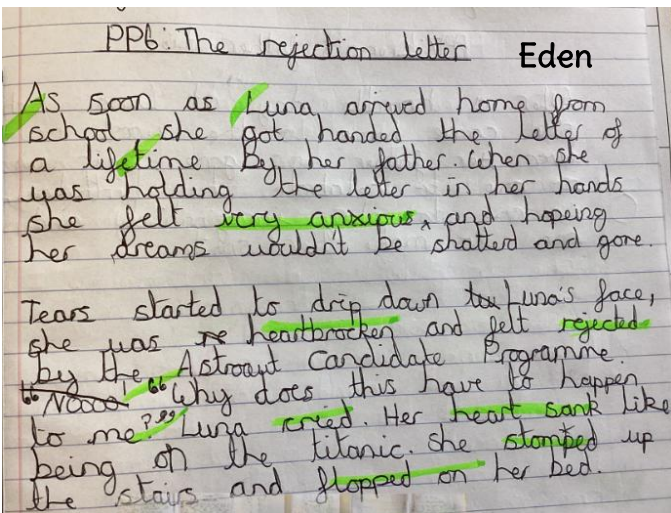 PP6: The rejection letter Eden
As soon as Luna arrived home from
school she got handed the letter of
a lifetime by her father. When she
was holding the letter in her hands
she felt very anxious, and hopeing
her dreams wouldn't be shatted and gone.
Tears started to drip down Luna's face,
she was heartbrocken and felt rejected
by the Astroaut Candidate Programme.
"Noooo, "Why does this have to happen
to me?" Luna cried. Her heart sank like
being on the titanic. she stomped up
the stairs and flopped on her bed.